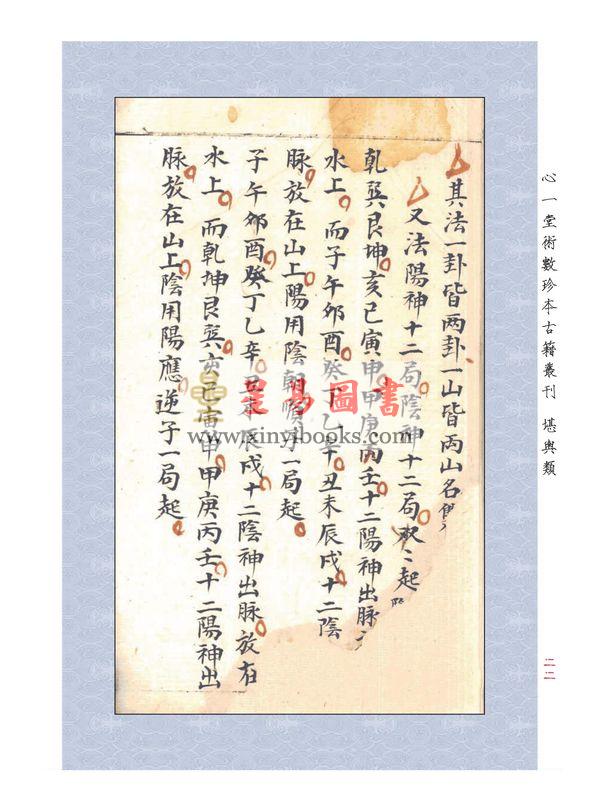 心一堂術數珍本古籍叢刊 堪輿類
其法一卦皆两卦一山皆两山名
又法陽神十二局陰神十二局起
乾巽艮坤亥巳寅申甲庚丙壬十二陽神出脉
水上而子午卯酉癸丁乙辛丑未辰戌十二陰
脉放在山上陽用陰朝順子一局起
子午卯酉癸丁乙辛丑未辰戌十二陰神出脉放在
水上而乾坤艮巽亥巳寅申甲庚丙壬十二陽神出
脉放在山上陰用陽應逆子一局起
星易圖書
www.xinyibooks.com
二二